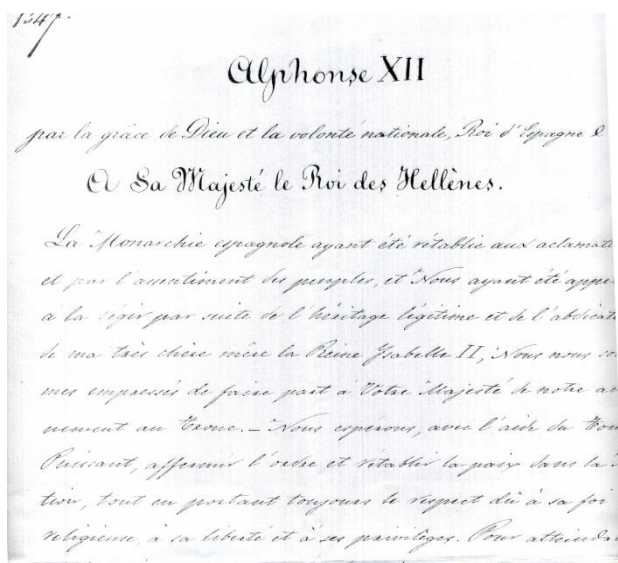 1347.
Alphonse XII
par la grâce de Dieu et la volonté nationale, Roi d'Espagne &
A Sa Majesté le Roi des Hellènes.
La Monarchie espagnole ayant été rétablie aux acclamati
et par l'assentiment des peuples, et Nous ayant été appe
à la régir par suite de l'héritage légitime et de l'abdicati
de ma très chère mère la Reine Ysabelle II, Nous nous som
mes empressés de faire part à Votre Majesté de notre avè
nement au Trone. _ Nous espérons, avec l'aide du Tou
Puissant, affermir l'ordre et rétablir la paix dans la
tion, tout en portant toujours le respect dû à sa foi
religieuse, à sa liberté et à ses privilèges. Pour atteindr